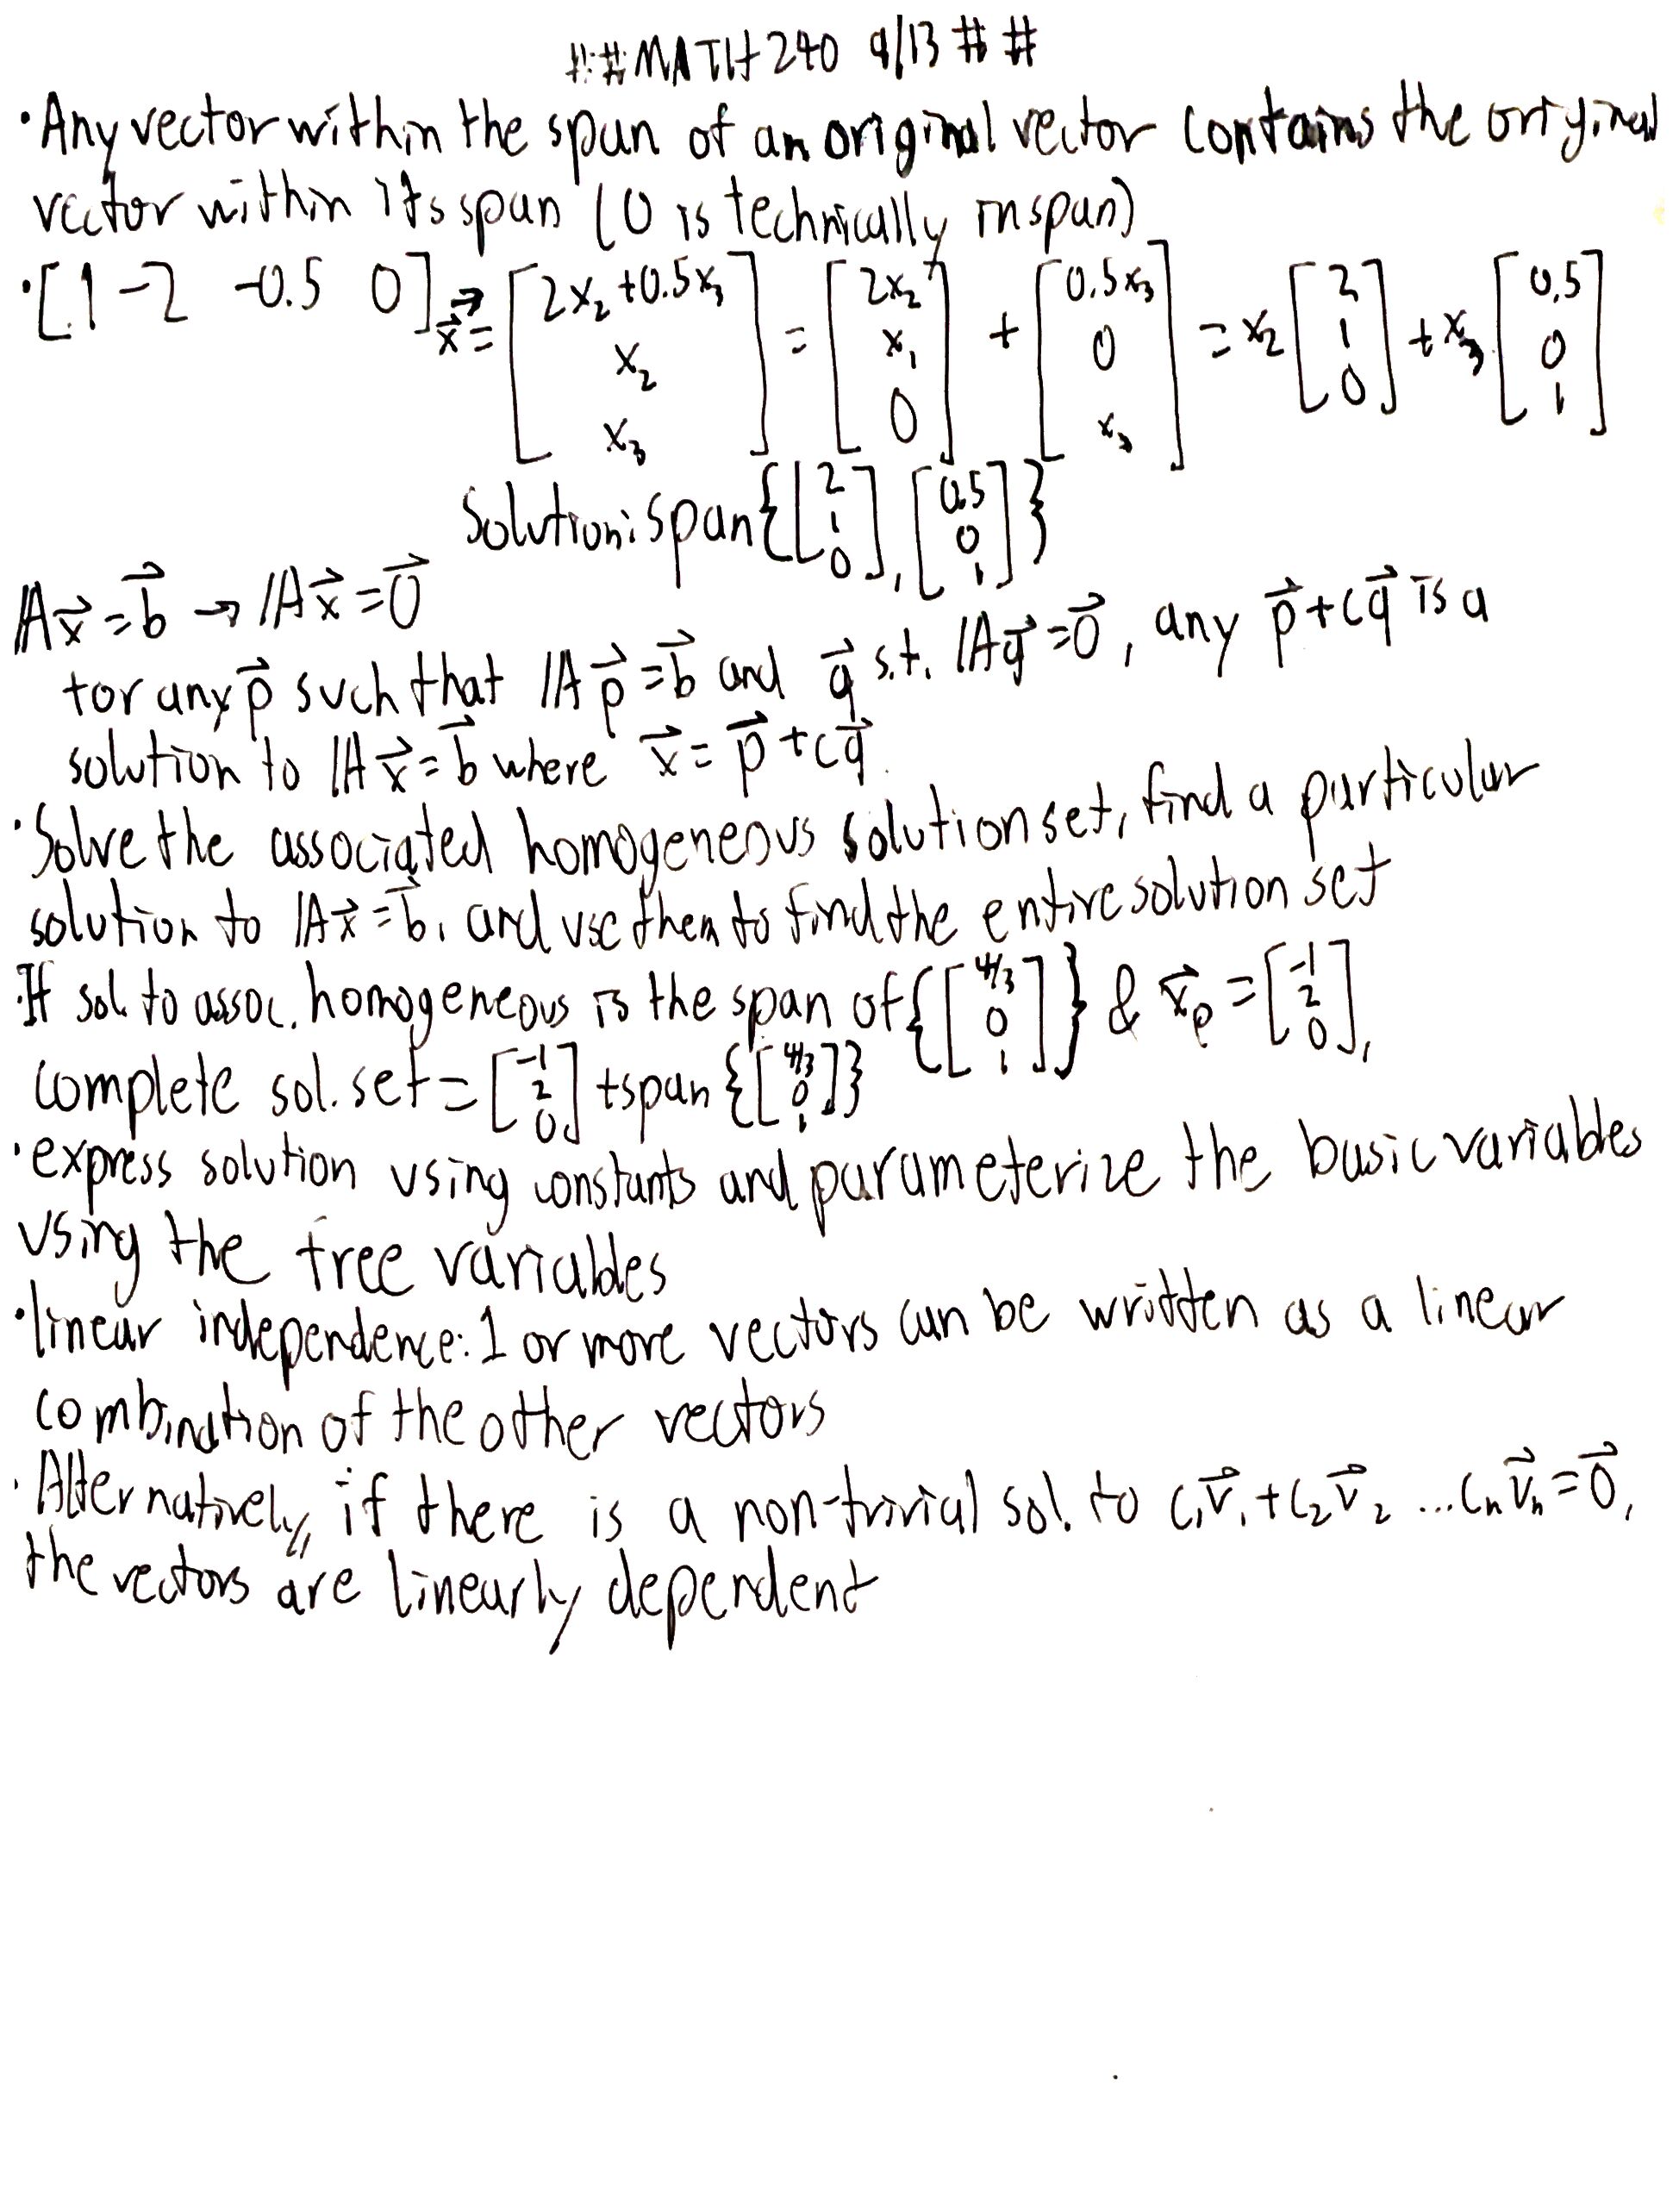 ##MATH240 9/13 ##
·Any vector within the span of an original vector contains the original
vector within its span (0 is technically in span)
·[1 -2 -0.5 0] → x⃗ = [2x₂+0.5x₃; x₂; x₃] = [2x₂; x₁; 0] + [0.5x₃; 0; x₃] = x₂[2; 1; 0] + x₃[0.5; 0; 1]
Solution: span{[2; 1; 0], [0.5; 0; 1]}
Ax⃗=b⃗ → Ax⃗=0⃗
for any p⃗ such that Ap⃗=b⃗ and q⃗ s.t. Aq⃗=0⃗, any p⃗+cq⃗ is a
solution to Ax⃗=b⃗ where x⃗=p⃗+cq⃗
·Solve the associated homogeneous solution set, find a particular
solution to Ax⃗=b⃗, and use them to find the entire solution set
·If sol. to assoc. homogeneous is the span of {[4/3; 0; 1]} & x⃗ₚ=[-1; 2; 0],
complete sol. set = [-1; 2; 0] + span {[4/3; 0; 1]}
·express solution using constants and parameterize the basic variables
using the free variables
·linear independence: 1 or more vectors can be written as a linear
combination of the other vectors
·Alternatively, if there is a non-trivial sol. to c₁v⃗₁+c₂v⃗₂ ...cₙv⃗ₙ=0⃗,
the vectors are linearly dependent